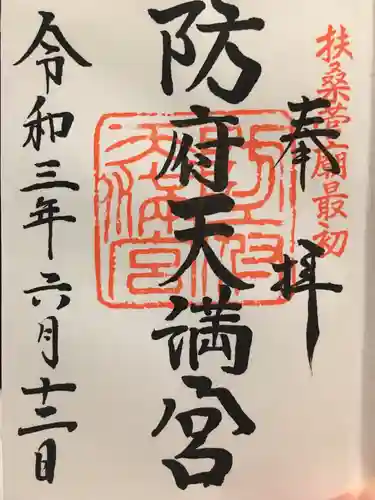 扶桑菅廟最初
奉拝
防府天満宮
令和三年六月十二日
防府天満宮